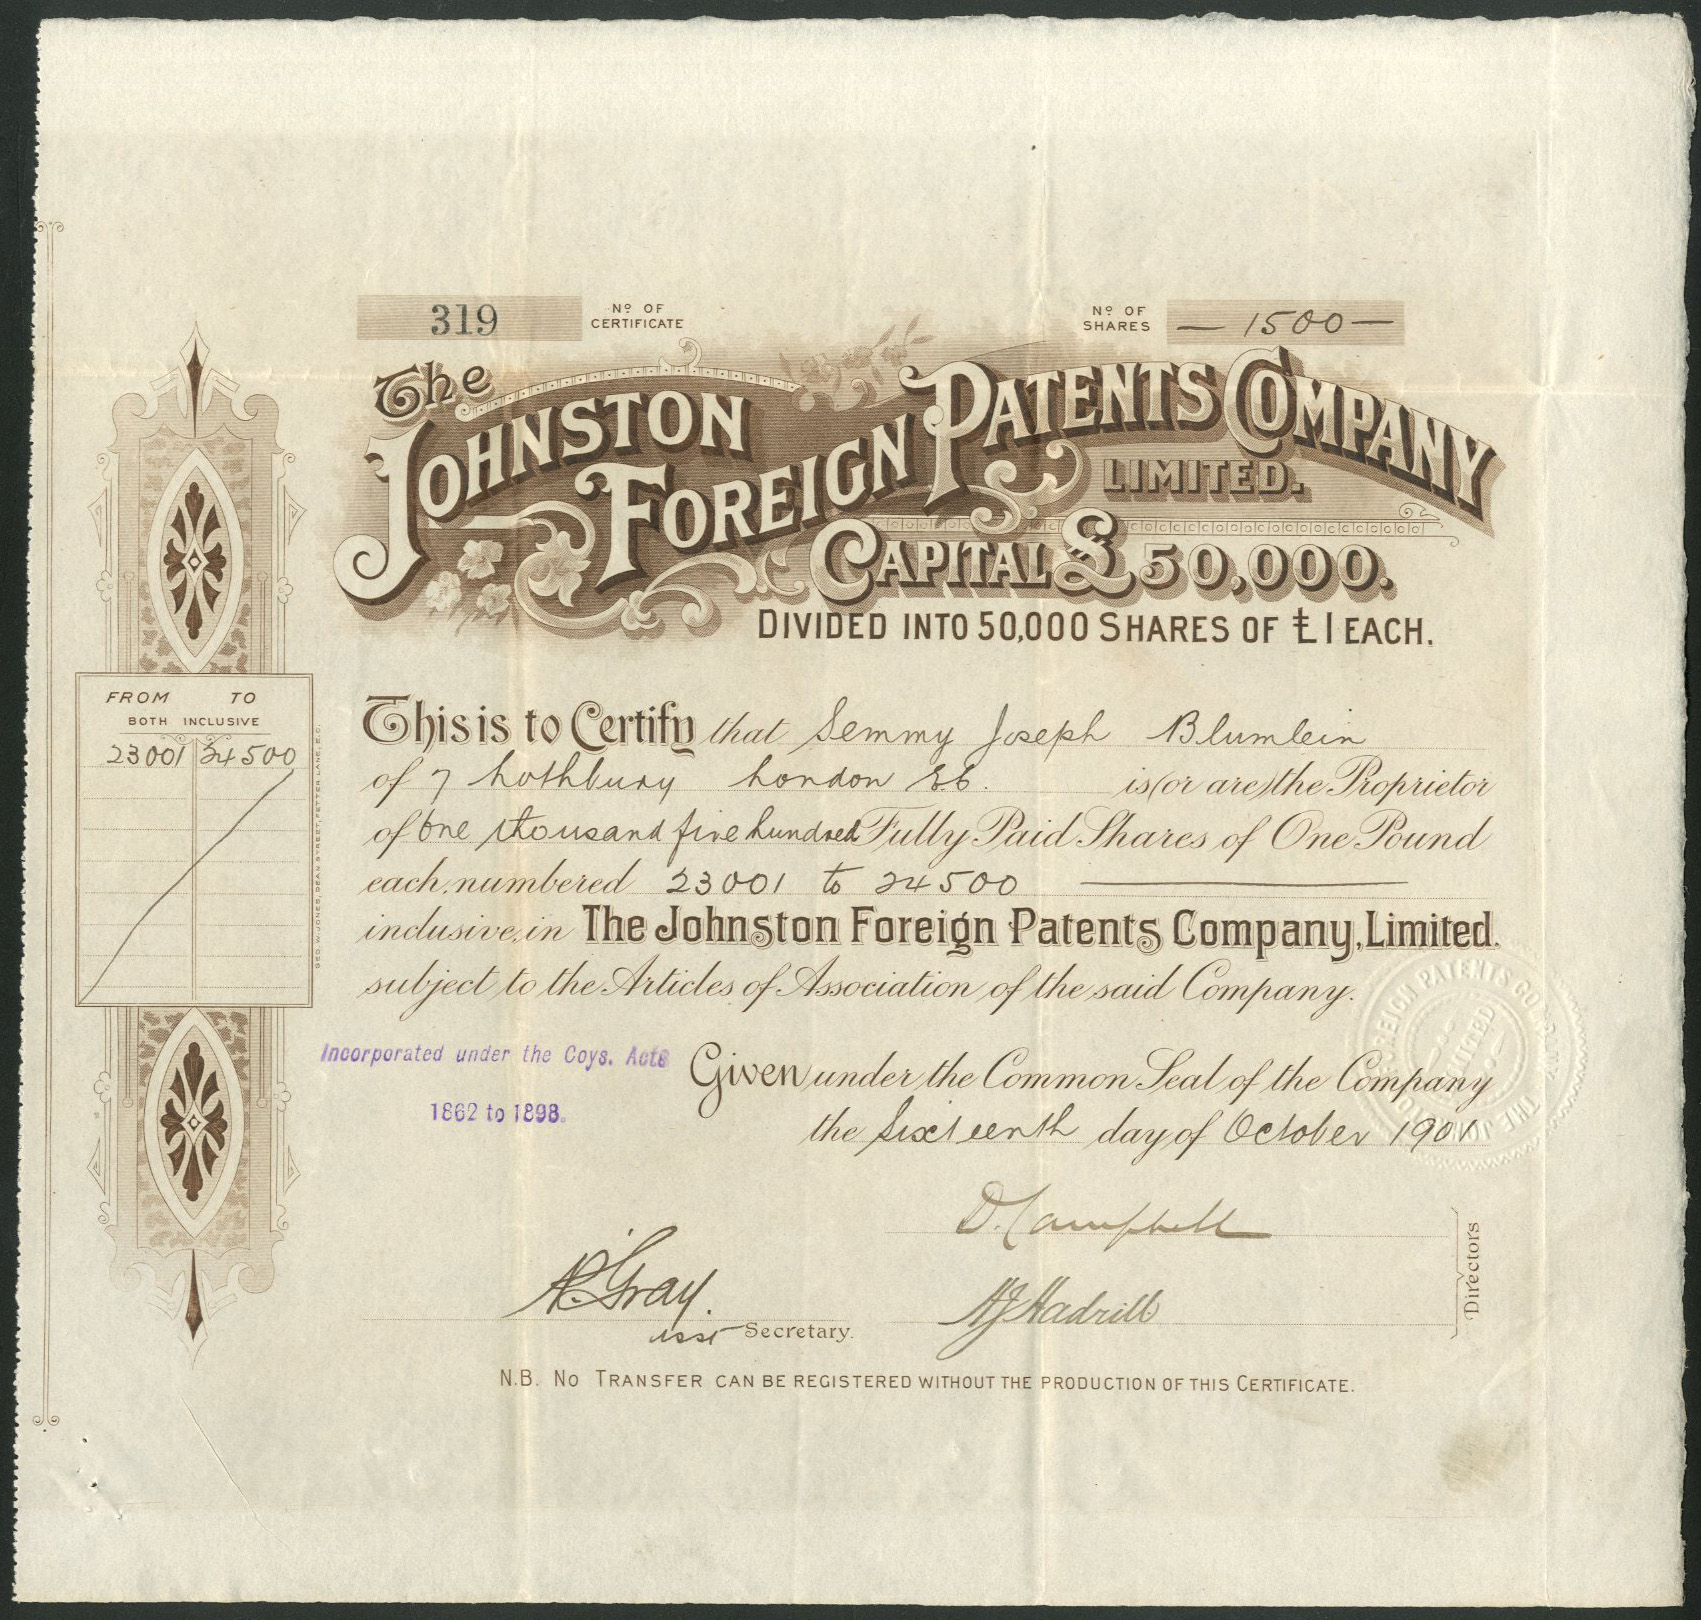 319
Nº OF CERTIFICATE
Nº OF SHARES
— 1500 —
The
JOHNSTON FOREIGN PATENTS COMPANY
LIMITED.
CAPITAL £50,000.
DIVIDED INTO 50,000 SHARES OF £1 EACH.
FROM TO
BOTH INCLUSIVE
23001 24500
GEO. W. JONES, DEAN STREET, FETTER LANE, E.C.
This is to Certify that Semmy Joseph Blumlein
of 7 Lothbury London E.C. is (or are) the Proprietor
of One thousand five hundred Fully Paid Shares of One Pound
each, numbered 23001 to 24500
inclusive, in The Johnston Foreign Patents Company, Limited.
subject to the Articles of Association of the said Company.
Incorporated under the Coys. Acts
1862 to 1898.
Given under the Common Seal of the Company
the Sixteenth day of October 1901
D. Campbell
Gray.
asst Secretary.
Hadrill
Directors
N.B. NO TRANSFER CAN BE REGISTERED WITHOUT THE PRODUCTION OF THIS CERTIFICATE.
THE JOHNSTON FOREIGN PATENTS COMPANY
LIMITED